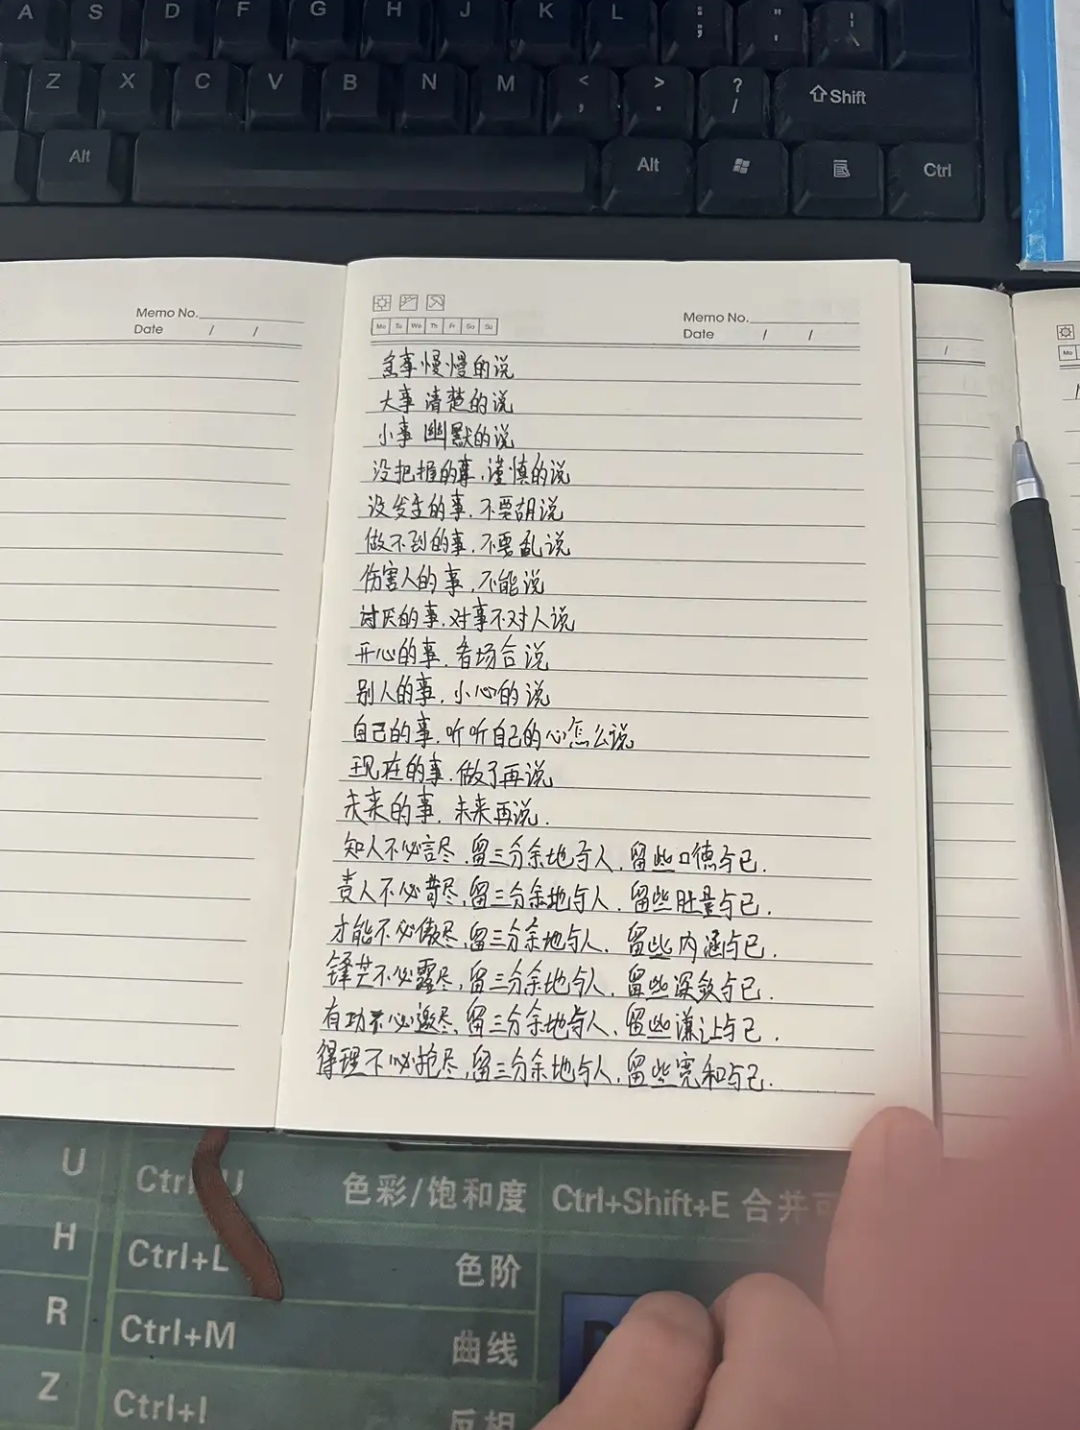 A S D F G H J K L : ; " ' | \
Z X C V B N M < , > . ? / Shift
Alt Alt Ctrl
Memo No.
Date / /
Mo Tu We Th Fr Sa Su
Memo No.
Date / /
急事慢慢的说
大事清楚的说
小事幽默的说
没把握的事.谨慎的说
没发生的事.不要胡说
做不到的事.不要乱说
伤害人的事.不能说
讨厌的事.对事不对人说
开心的事.看场合说
别人的事.小心的说
自己的事.听听自己的心怎么说
现在的事.做了再说
未来的事.未来再说.
知人不必言尽.留三分余地与人.留些口德与己.
责人不必苛尽,留三分余地与人.留些肚量与己.
才能不必傲尽,留三分余地与人.留些内涵与己.
锋芒不必露尽,留三分余地与人.留些深敛与己.
有功不必邀尽,留三分余地与人.留些谦让与己.
得理不必抢尽,留三分余地与人.留些宽和与己.
U Ctrl+U 色彩/饱和度 Ctrl+Shift+E 合并可
H Ctrl+L 色阶
R Ctrl+M 曲线
Z Ctrl+I 反相